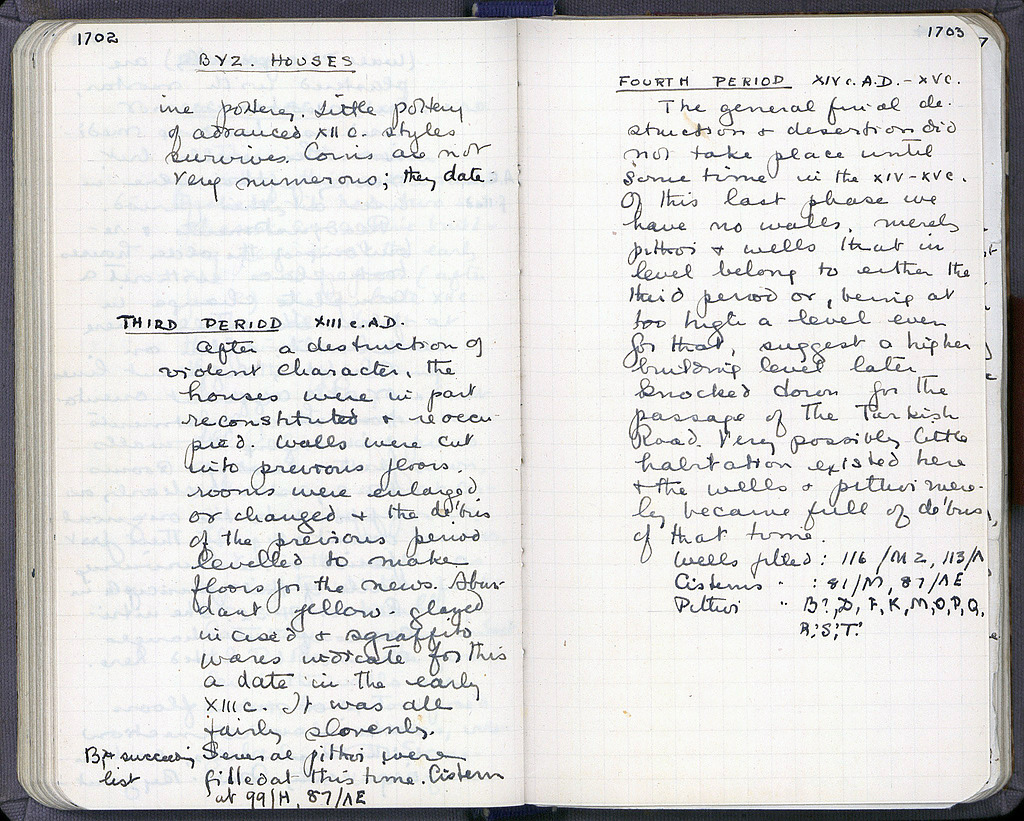 1702
BYZ. HOUSES
ine pottery. Little pottery
of advanced XII c. styles
survives. Coins are not
very numerous; they date
THIRD PERIOD XIII c. A.D.
After a destruction of
violent character, the
houses were in part
reconstituted & reoccu-
pied. Walls were cut
into previous floors
rooms were enlarged
or changed & the débris
of the previous period
levelled to make
floors for the news. Abun-
dant yellow glazed
incised & sgraffito
wares indicate for this
a date in the early
XIII c. It was all
fairly slovenly.
succeeding
list
Several pithoi were
filled at this time. Cistern
at 99/H, 87/ΛE
1703
FOURTH PERIOD XIV c. A.D. - XV c.
The general final de-
struction & desertion did
not take place until
some time in the XIV-XV c.
Of this last phase we
have no walls, merely
pithoi & wells that in
level belong to either the
third period or, being at
too high a level even
for that, suggest a higher
building level later
knocked down for the
passage of the Turkish
Road. Very possibly little
habitation existed here
& the wells & pithoi mere-
ly became full of débris
of that time.
Wells filled: 116/MZ, 113/Λ
Cisterns " : 81/M, 87/ΛE
Pithoi " B?, D, F, K, M, O, P, Q,
R, S, T.